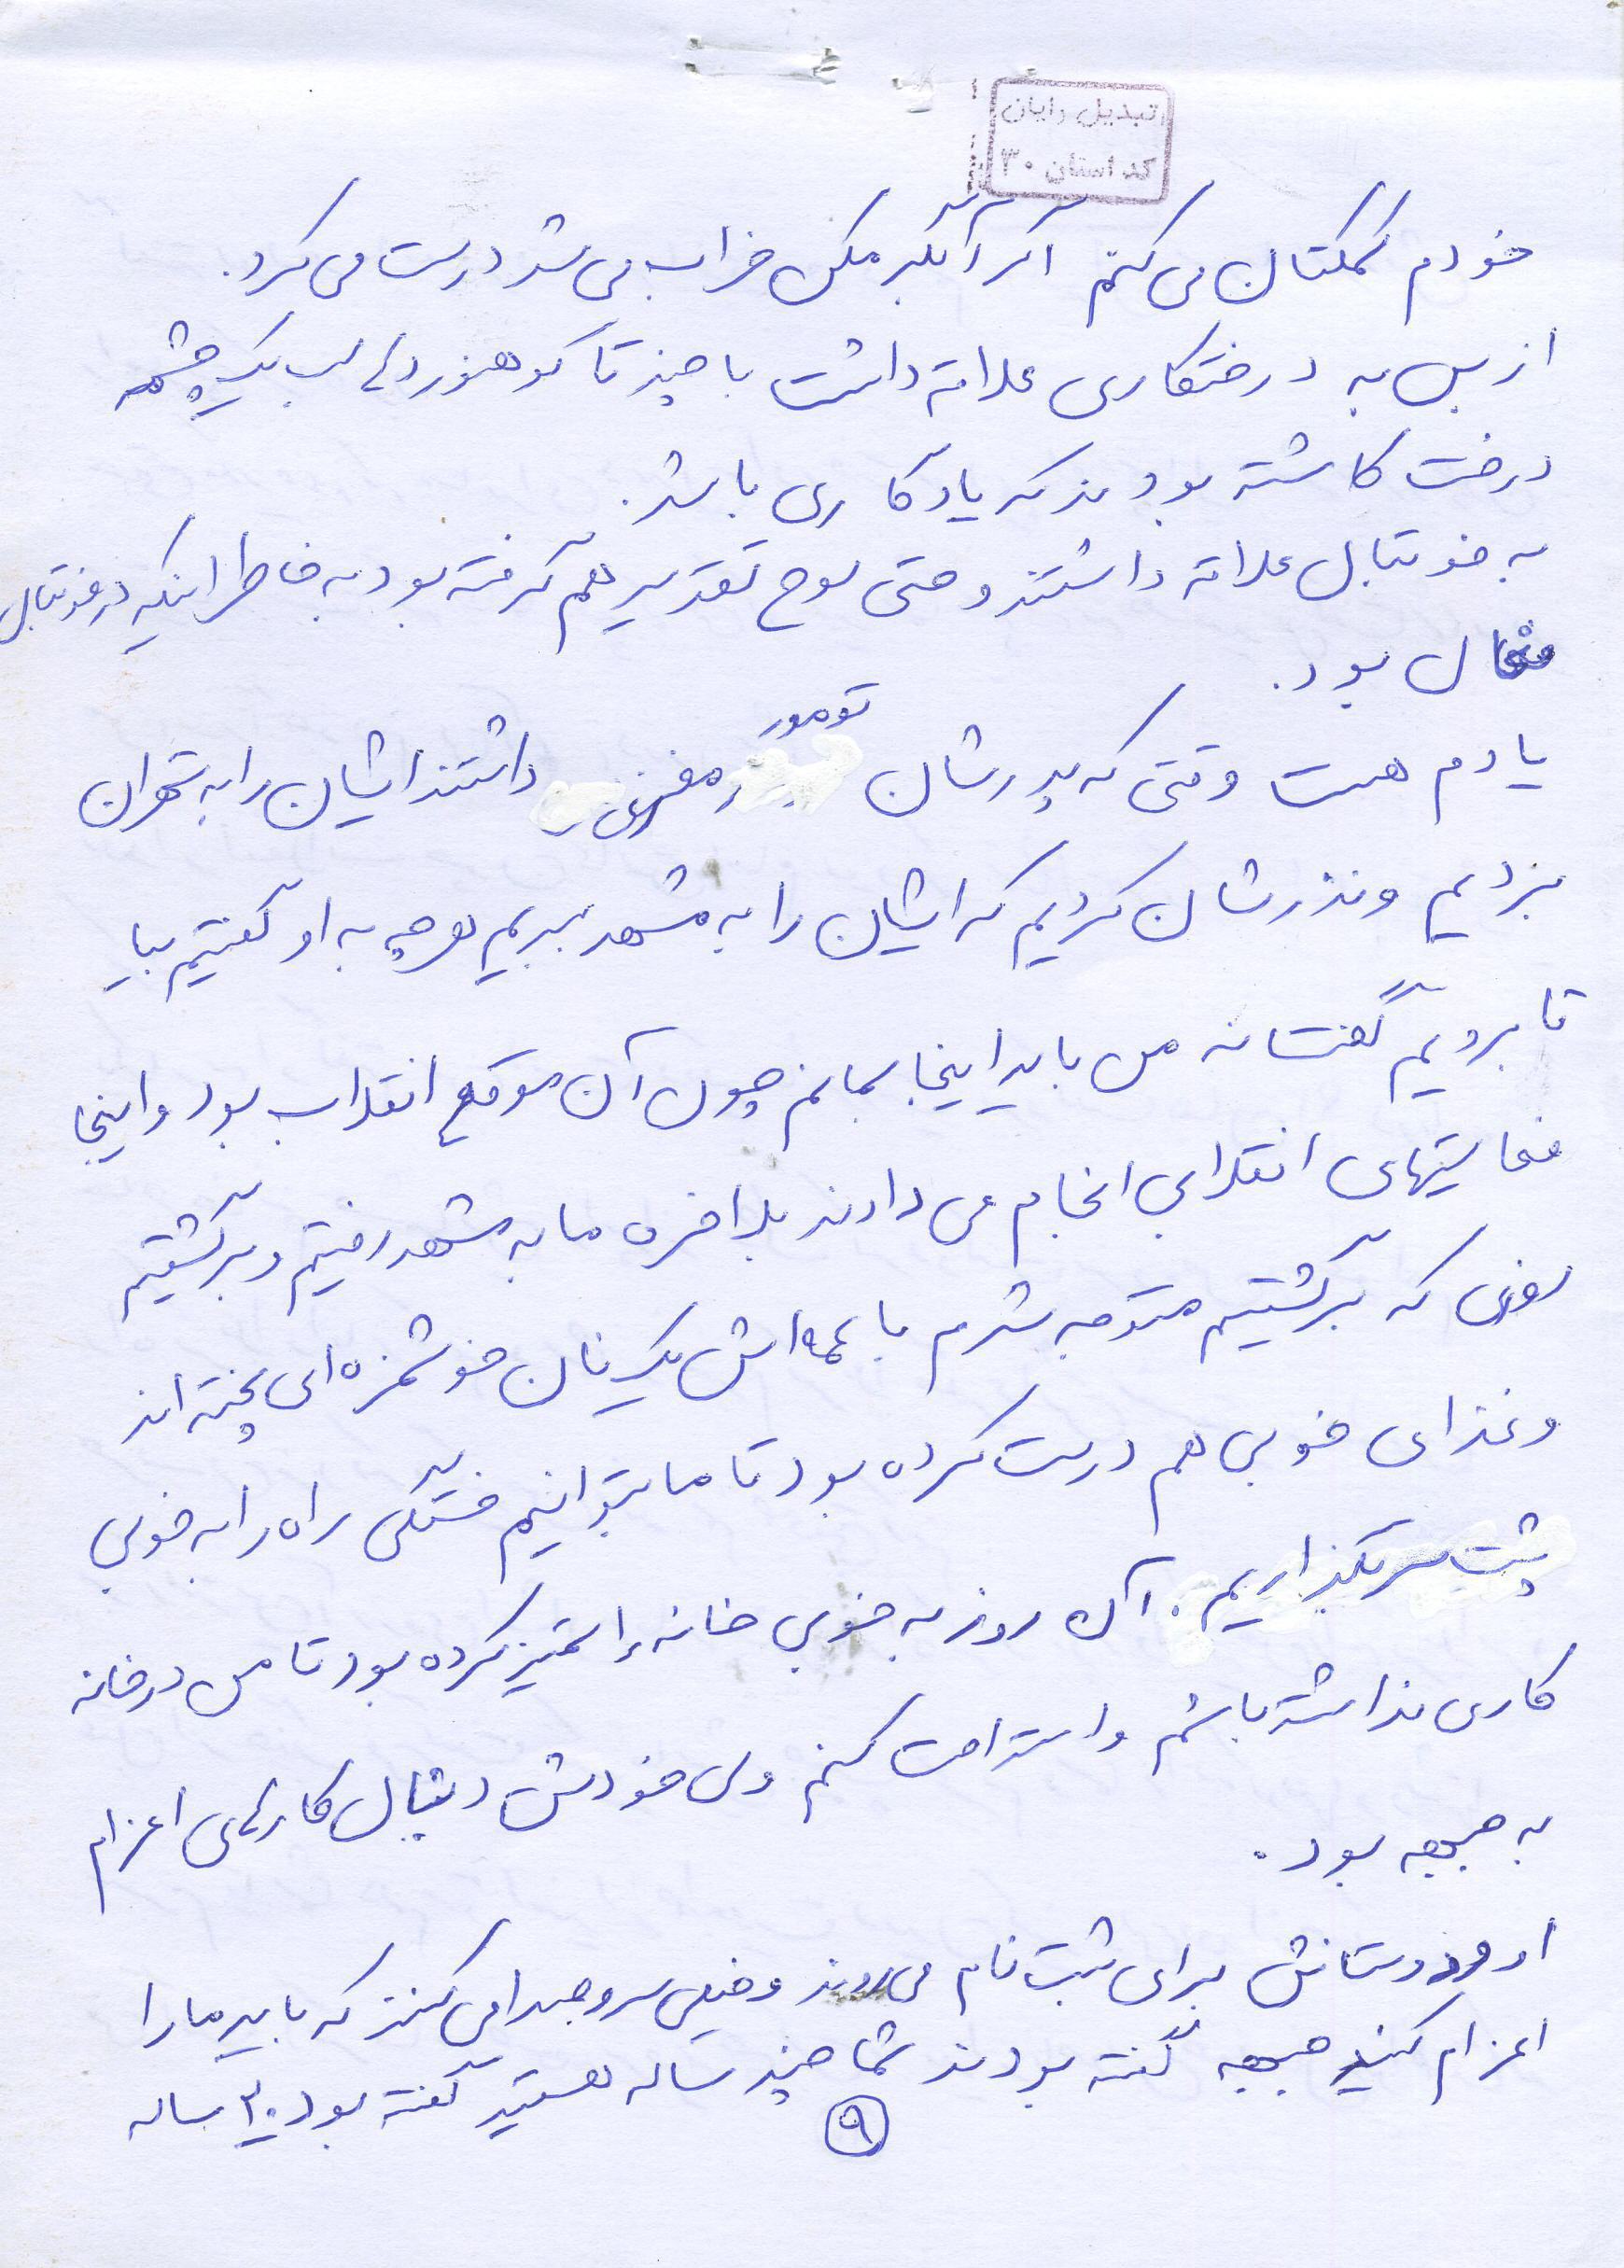 تبدیل رایان
کد استان ۳۰
خودم کمکتان می کنم اگر آبگرمکن خراب می شد درست می کرد.
از بس به درختکاری علاقه داشت با چند تا کوهنوردها لب یک چشمه
درخت کاشته بودند که یادگاری باشد.
به فوتبال علاقه داشتند و حتی لوح تقدیر هم گرفته بود به خاطر اینکه در فوتبال
فعال بود.
یادم هست وقتی که پدرشان تومور مغزی داشتند ایشان را به تهران
بردیم و نذرشان کردیم که ایشان را به مشهد ببریم هر چه به او گفتیم بیا
تا برویم گفت نه من باید اینجا بمانم چون آن موقع انقلاب بود و اینجا
فعالیتهای انقلابی انجام می دادند بلاخره ما به مشهد رفتیم و برگشتیم
که برگشتیم متوجه شدم با عمه اش یک نان خوشمزه ای پخته اند
و غذای خوبی هم درست کرده بود تا ما بتوانیم خستگی راه را به خوبی
پشت سر بگذاریم. آن روز به خوبی خانه را تمیز کرده بود تا من در خانه
کاری نداشته باشم و استراحت کنم ولی خودش دنبال کارهای اعزام
به جبهه بود.
او و دوستانش برای ثبت نام می روند و خیلی سر و صدا می کنند که باید ما را
اعزام کنید جبهه گفته بودند شما چند ساله هستید گفته بود ۲۰ ساله
۹